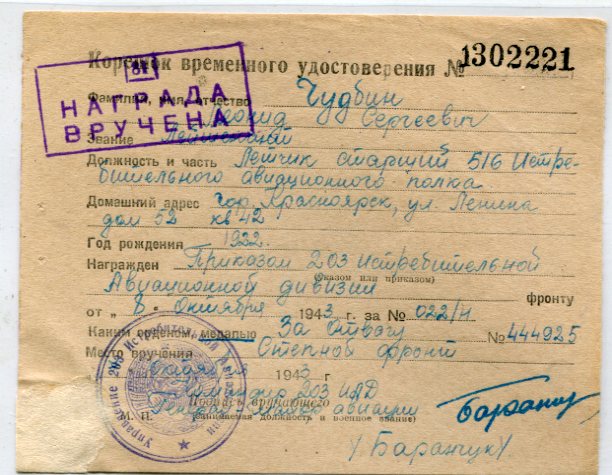 Корешок временного удостоверения № 1302221
НАГРАДА ВРУЧЕНА
Фамилия, имя, отчество Чудбин
Леонид Сергеевич
Звание
Должность и часть Летчик старший 516 Истре-
бительного авиационного полка
Домашний адрес гор. Красноярск, ул. Ленина
дом 52 кв 42
Год рождения 1922.
Награжден Приказом 203 истребительной
(указом или приказом)
Авиационной дивизии фронту
от „ 8 „ Октября 1943 г. за № 022/н
Каким орденом, медалью За Отвагу № 444925
Место вручения Степной фронт
1943 г
Командир 203 ИАД
Подпись вручающего
Генерал авиации
М. П. (занимаемая должность и военное звание)
/Баранчук/
Управление 203 Истребитель